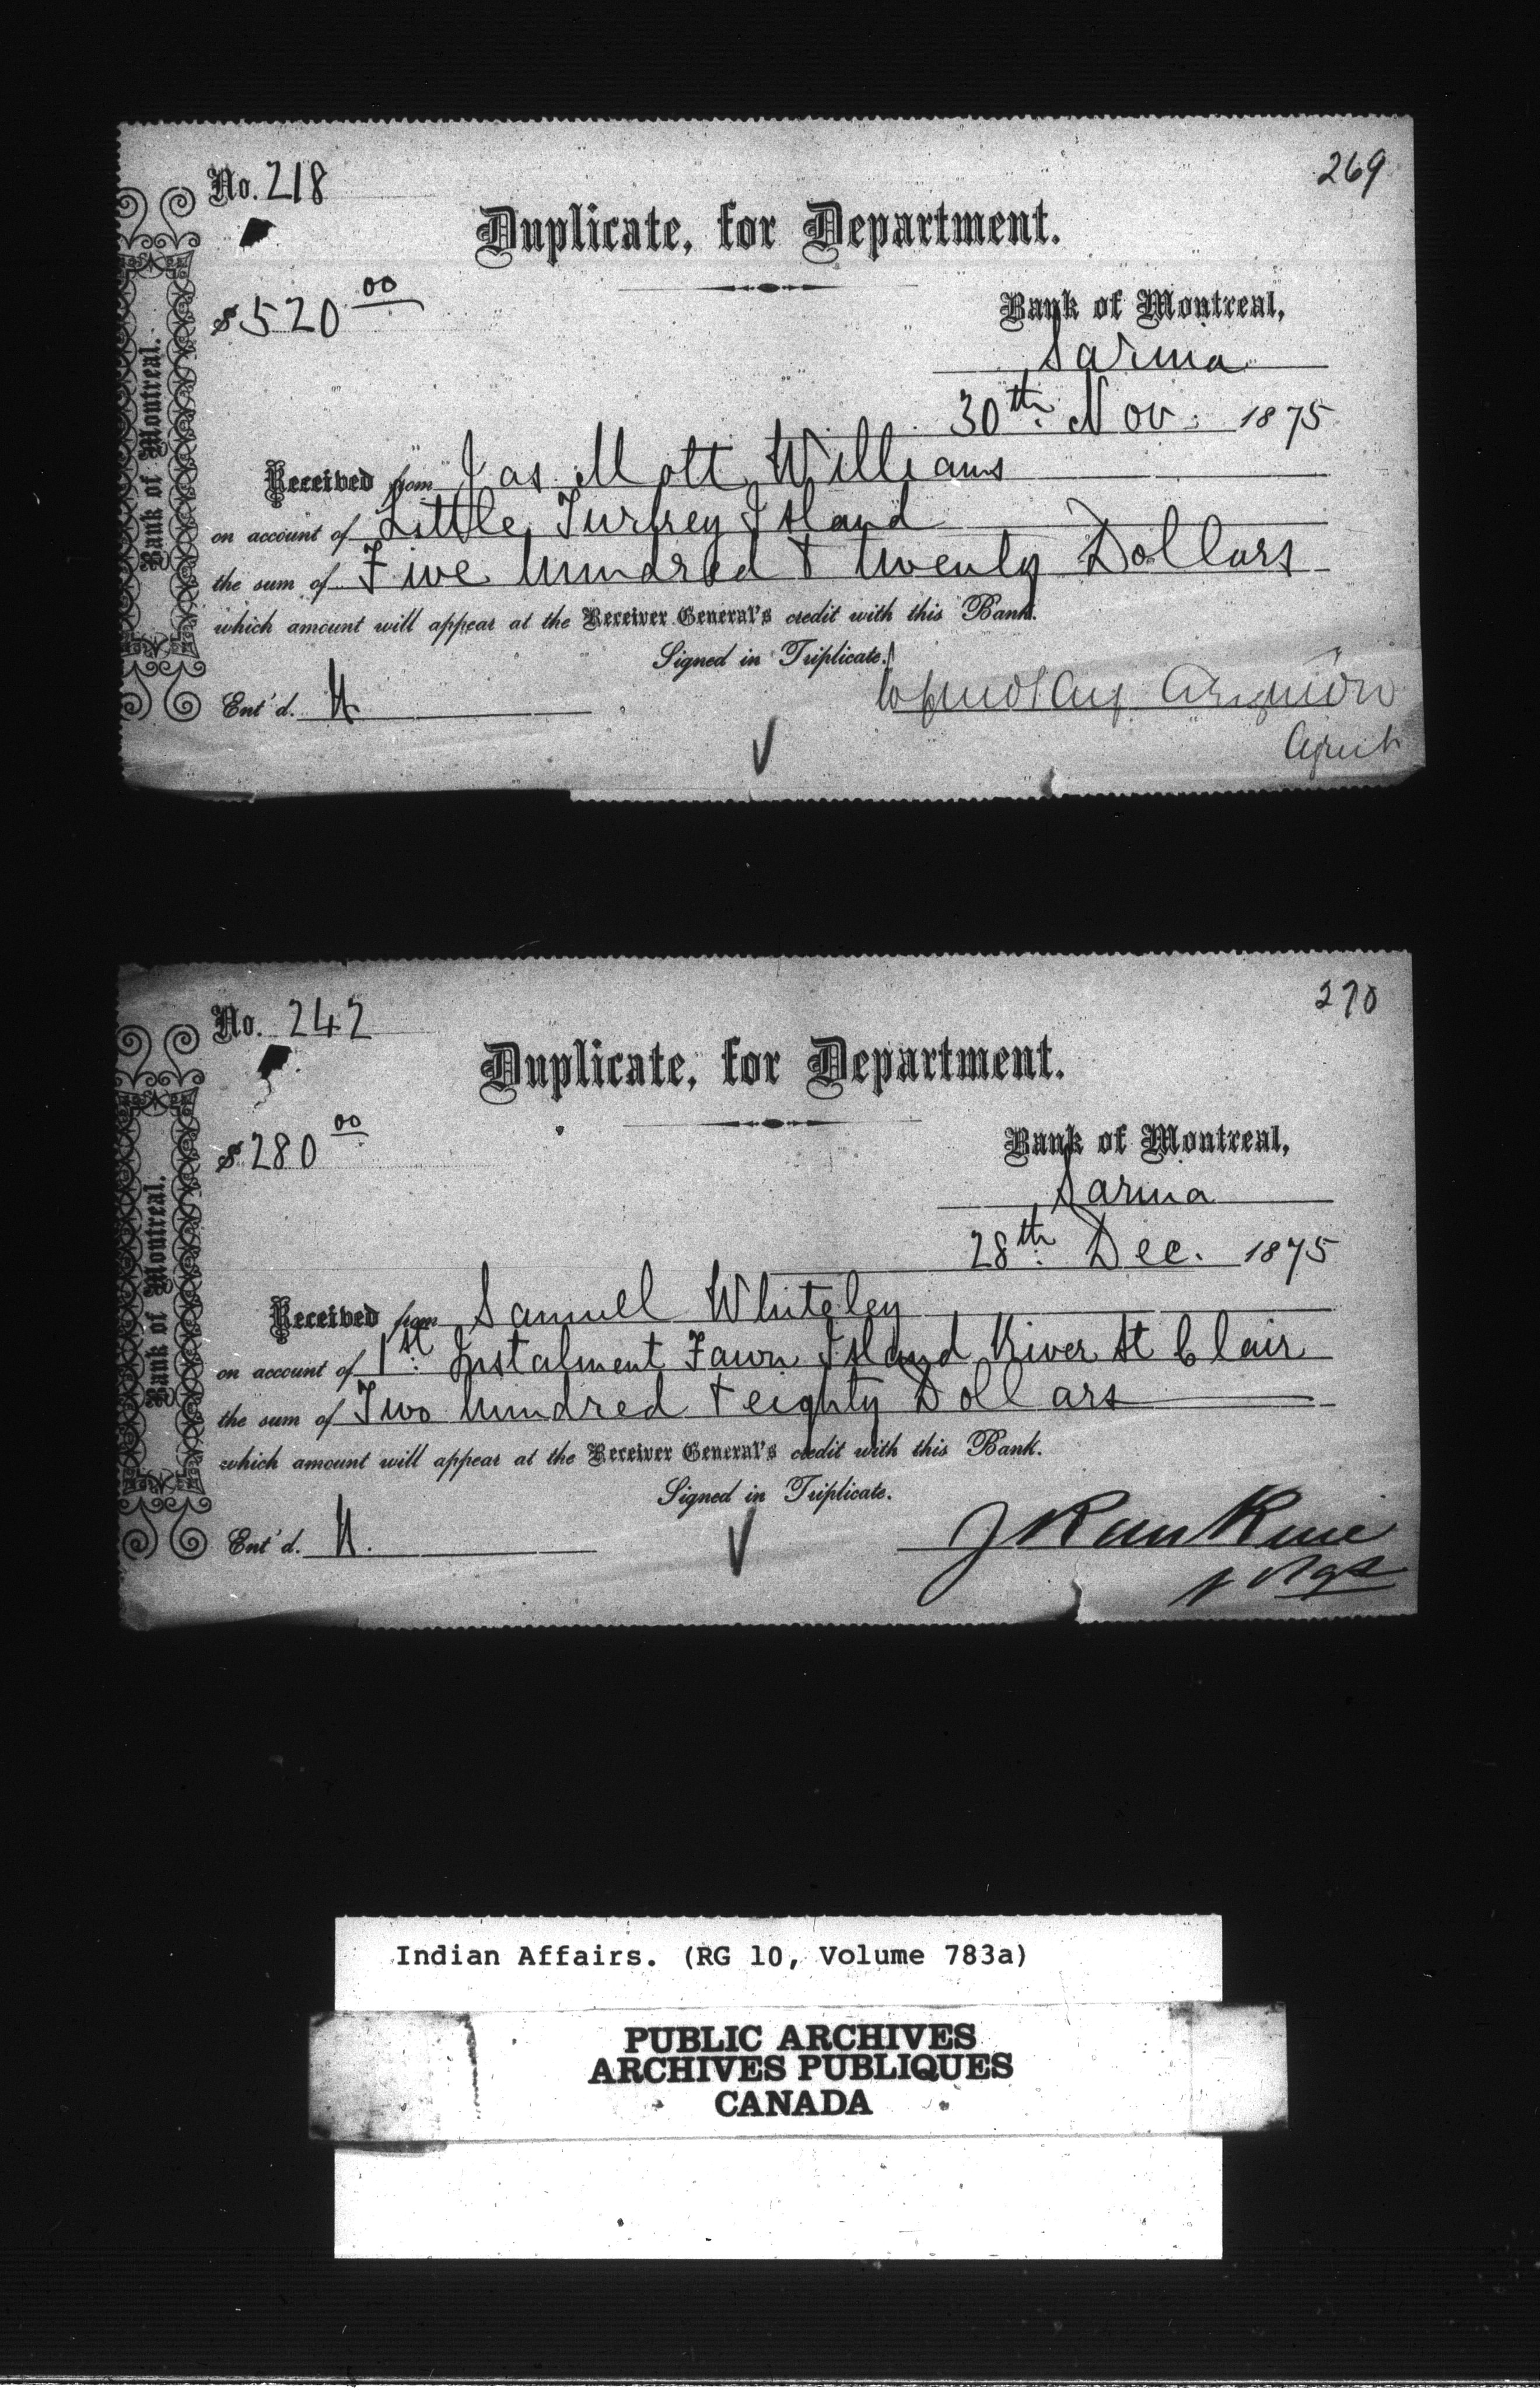 269
No. 218
Duplicate, for Department.
$ 520 00
Bank of Montreal,
Sarnia
30th Nov. 1875
Received from Jas. Mott Williams
on account of Little Turkey Island
the sum of Five hundred & twenty Dollars
which amount will appear at the Receiver General's credit with this Bank.
Signed in Triplicate.
Ent'd.
Agent
Bank of Montreal.
270
No. 242
Duplicate, for Department.
$ 280 00
Bank of Montreal,
Sarnia
28th Dec. 1875
Received from Samuel Whiteley
on account of 1st Instalment Fawn Island River St Clair
the sum of Two hundred & eighty Dollars
which amount will appear at the Receiver General's credit with this Bank.
Signed in Triplicate.
Ent'd.
J Rankine
Agt
Bank of Montreal.
Indian Affairs. (RG 10, Volume 783a)
PUBLIC ARCHIVES
ARCHIVES PUBLIQUES
CANADA